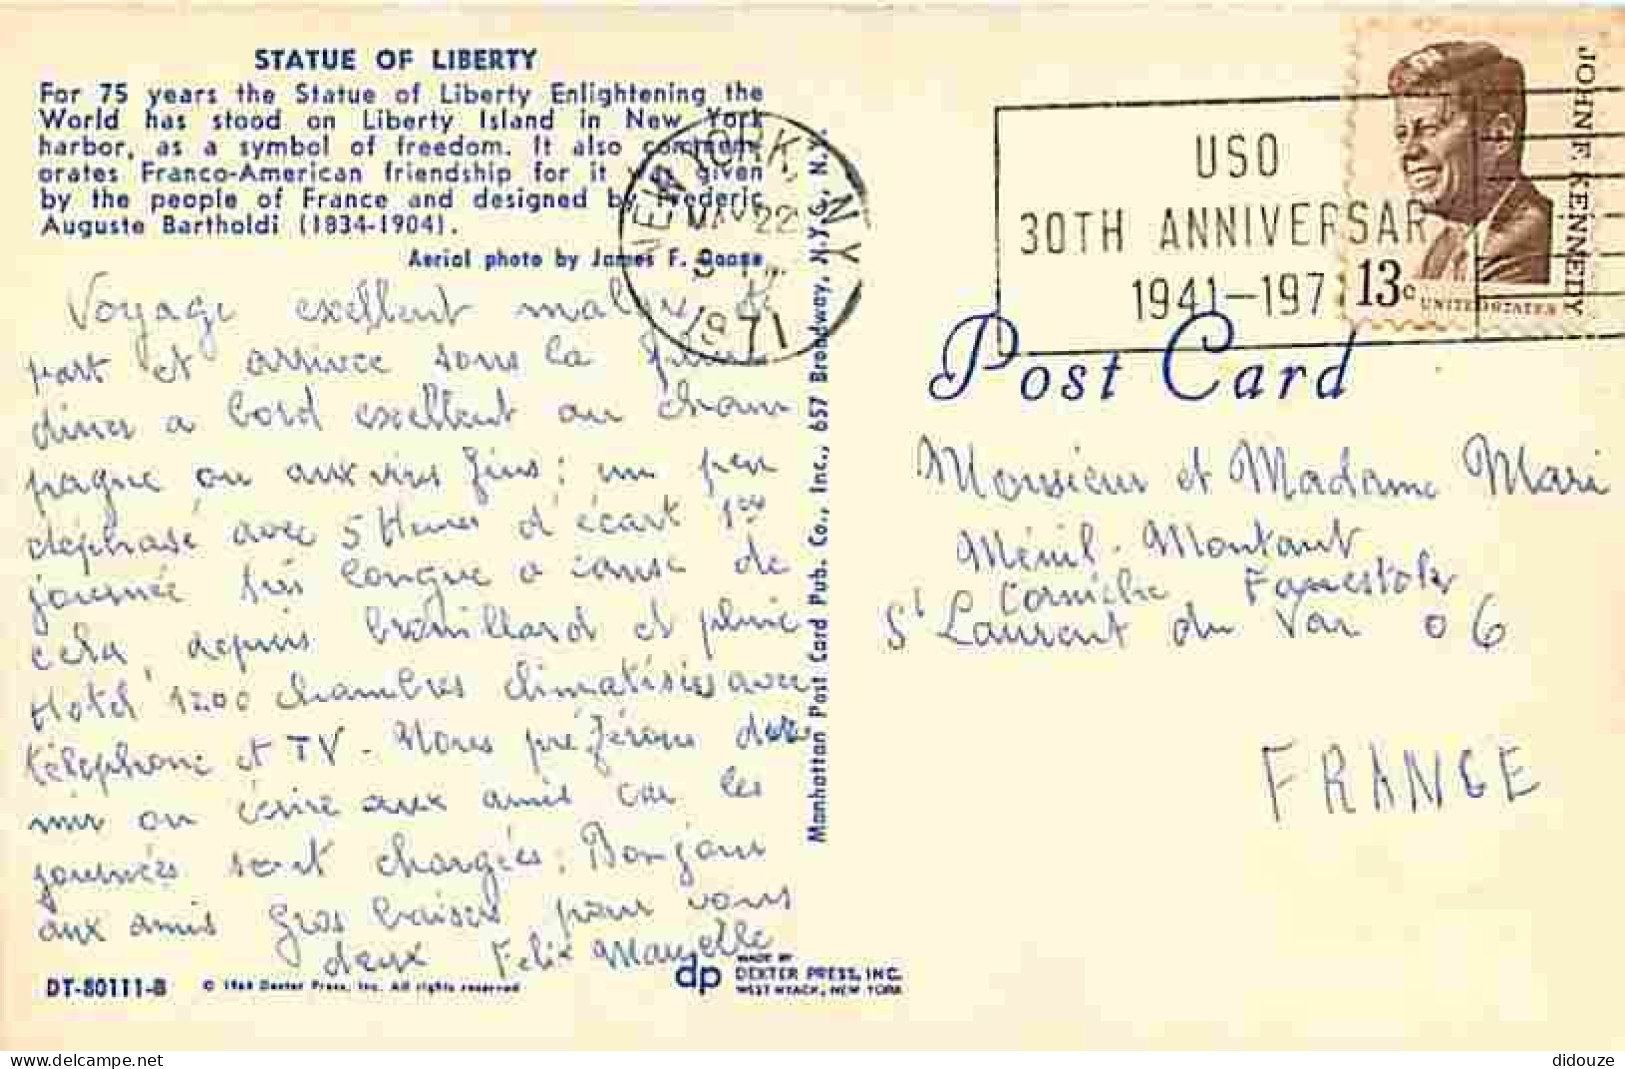 STATUE OF LIBERTY
For 75 years the Statue of Liberty Enlightening the
World has stood on Liberty Island in New York
harbor, as a symbol of freedom. It also commem-
orates Franco-American friendship for it was given
by the people of France and designed by Frederic
Auguste Bartholdi (1834-1904).
Aerial photo by James F. Doane
Voyage excellent malgré le
part et arrivée sous la pluie
diner a bord excellent au cham
pagne ou aux vins fins : un peu
déphasé avec 5 Heures d'écart 1ere
journée très longue a cause de
cela, depuis brouillard et pluie
Hotel 1200 chambres climatisées avec
téléphone et TV - Nous préférons dor
mir ou écrire aux amis car les
journées sont chargées. Bonjour
aux amis Gros baisers pour vous
deux Felix Mauzelle
DT-80111-B
© 1964 Dexter Press, Inc. All rights reserved
dp
MADE BY
DEXTER PRESS, INC.
WEST NYACK, NEW YORK
Manhattan Post Card Pub. Co., Inc., 657 Broadway, N.Y.C., N.Y.
NEW YORK, N.Y.
MAY 22
1971
USO
30TH ANNIVERSAR
1941-197
JOHN F. KENNEDY
13c
UNITED STATES
Post Card
Monsieur et Madame Mari
Ménil-Montant
Corniche Fahnestock
St Laurent du Var 06
FRANCE
didouze